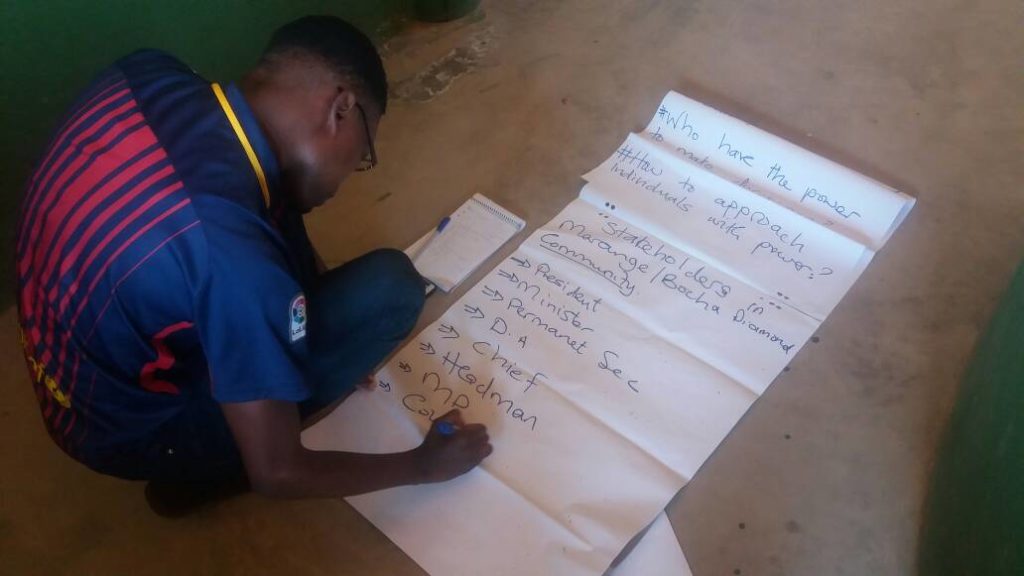 #Who have the power
to make
#How to approach
individuals with power?
"Stakeholders in"
Marange/Bocha Diamond
Community
⇒ President
⇒ Minister
⇒ Permanet Sec
⇒ D.A
⇒ Chief
⇒ Headman
⇒ MP
⇒ Cou